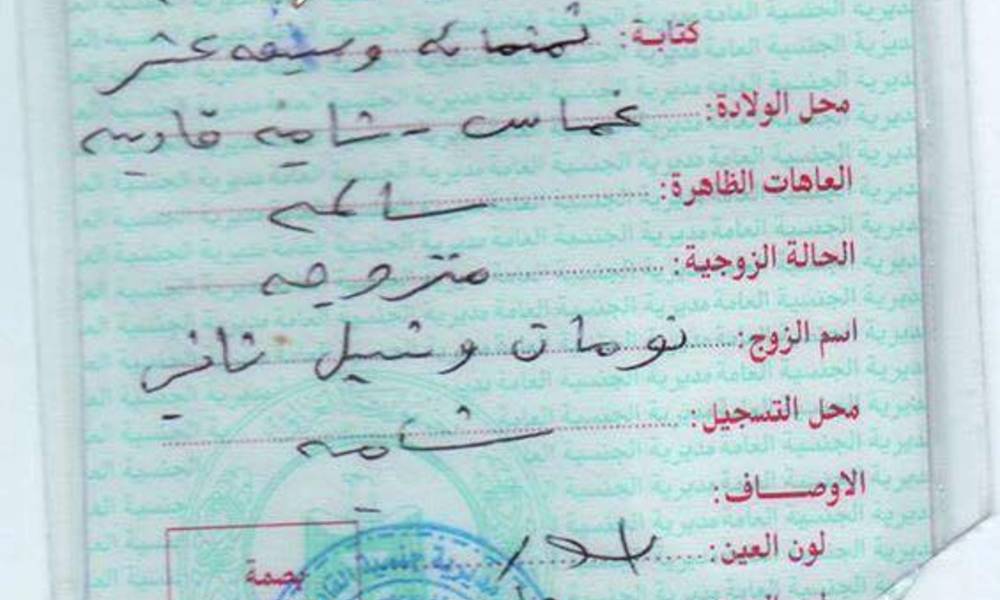 كتابة: ثمنمائه وسبعه عشر
محل الولادة: غماس - شاميه قادسيه
العاهات الظاهرة: سالمه
الحالة الزوجية: متزوجه
اسم الزوج: نومان وشيل ثاني
محل التسجيل: شاميه
الاوصـــاف:
لون العين: اسود
بصمة
مديرية جنسية